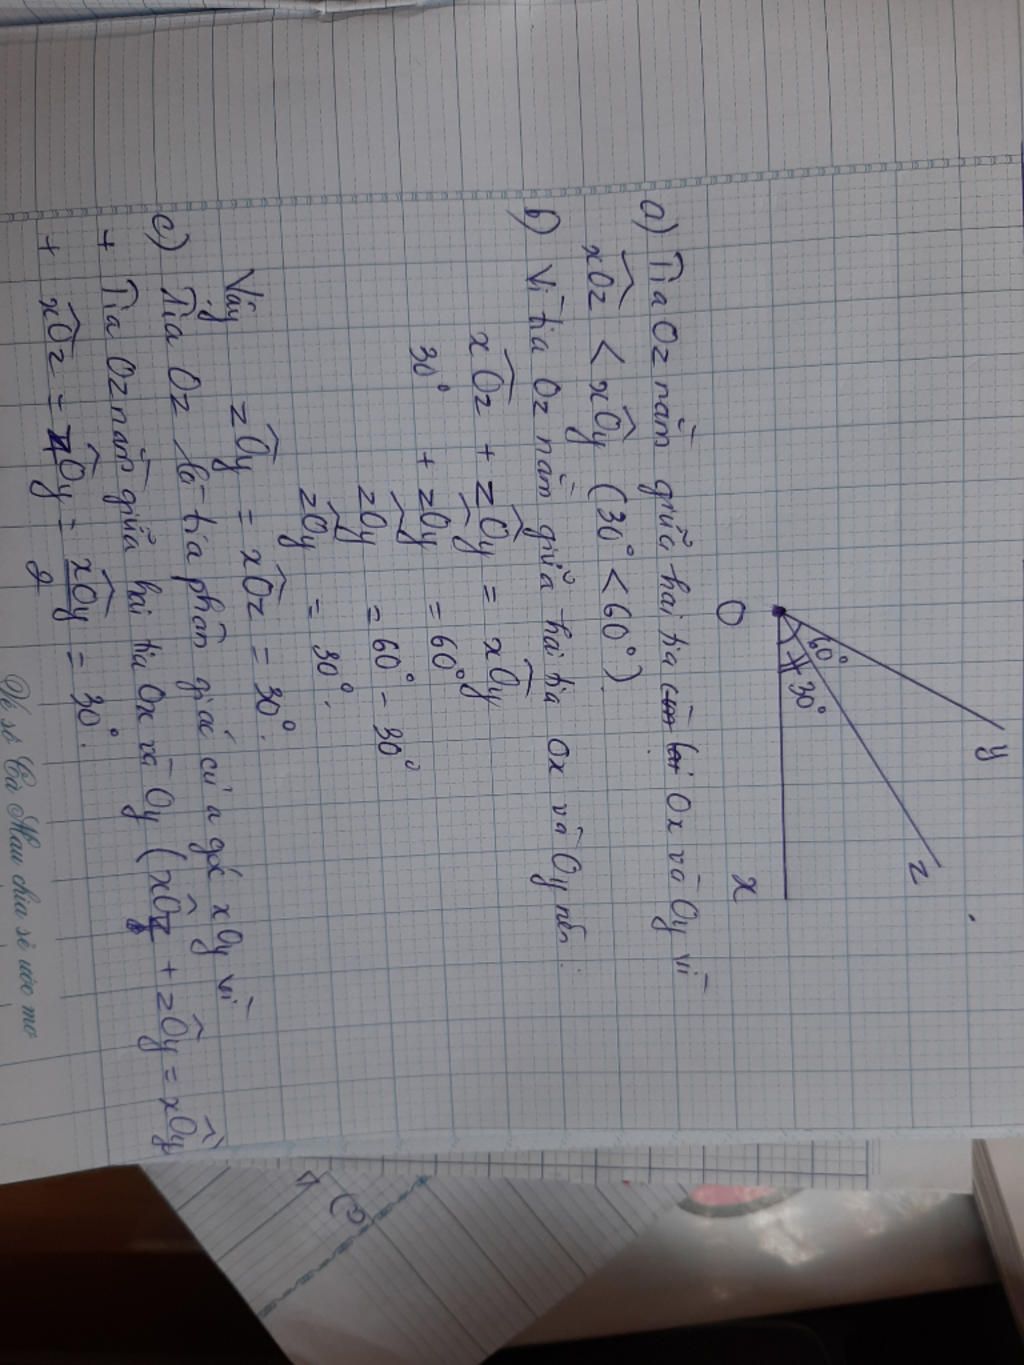 y
z
60°
30°
O
x
a) Tia Oz nằm giữa hai tia Ox và Oy vì
xOz < xOy (30° < 60°)
b) Vì tia Oz nằm giữa hai tia Ox và Oy nên:
xOz + zOy = xOy
30° + zOy = 60°
zOy = 60° - 30°
zOy = 30°.
Vậy zOy = xOz = 30°.
c) Tia Oz là tia phân giác của góc xOy vì
+ Tia Oz nằm giữa hai tia Ox và Oy (xOz + zOy = xOy
+ xOz = zOy = xOy/2 = 30°.
Vé số Cà Mau chia sẻ ước mơ